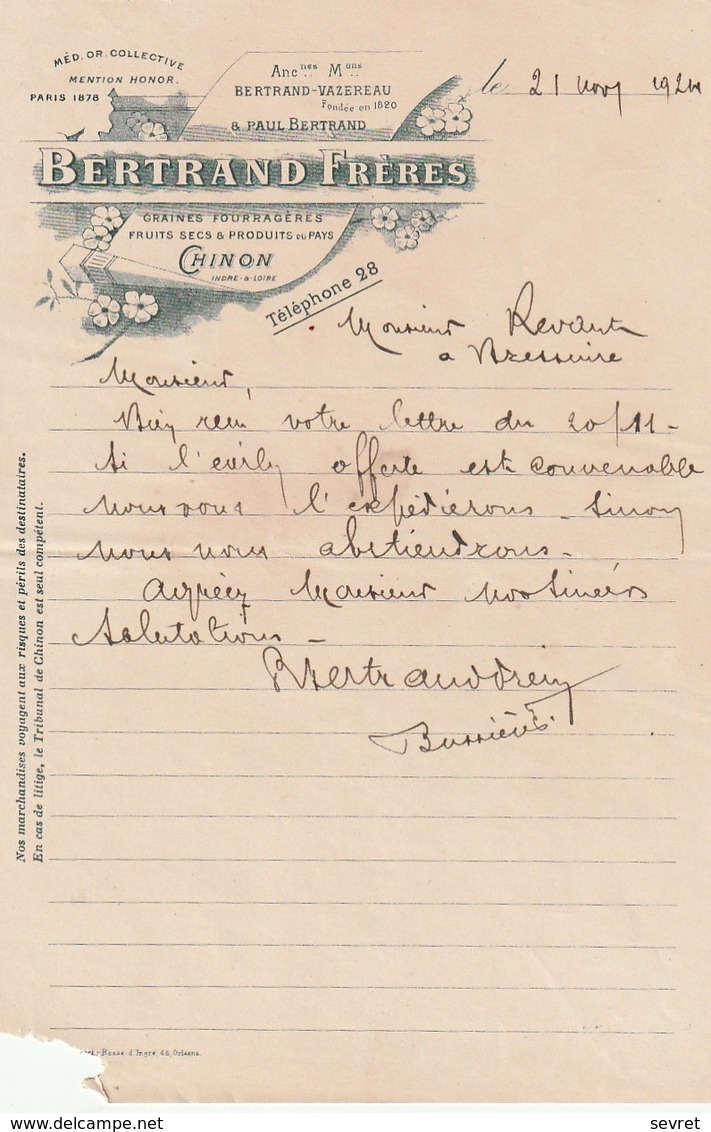 MÉD. OR. COLLECTIVE
MENTION HONOR.
PARIS 1878
Anc.nes M.ons
BERTRAND-VAZEREAU
Fondée en 1820
& PAUL BERTRAND
BERTRAND FRÈRES
GRAINES FOURRAGÈRES
FRUITS SECS & PRODUITS DU PAYS
CHINON
INDRE-&-LOIRE
Téléphone 28
le 21 nov 1924
Monsieur
a Bressuire
Monsieur,
Bien reçu votre lettre du 20/11 -
Si l'échly offerte est convenable
nous vous l'expédierons - sinon
nous nous abstiendrons -
Agréez Monsieur nos sincères
Salutations -
Bertrand
Nos marchandises voyagent aux risques et périls des destinataires.
En cas de litige, le Tribunal de Chinon est seul compétent.
Basse-d'Ingré, 45, Orléans.
sevret